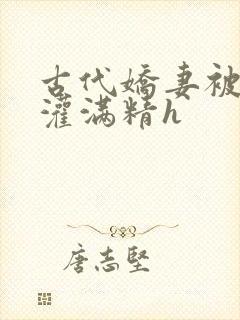 古代嬌妻被
灌滿精h
唐志堅